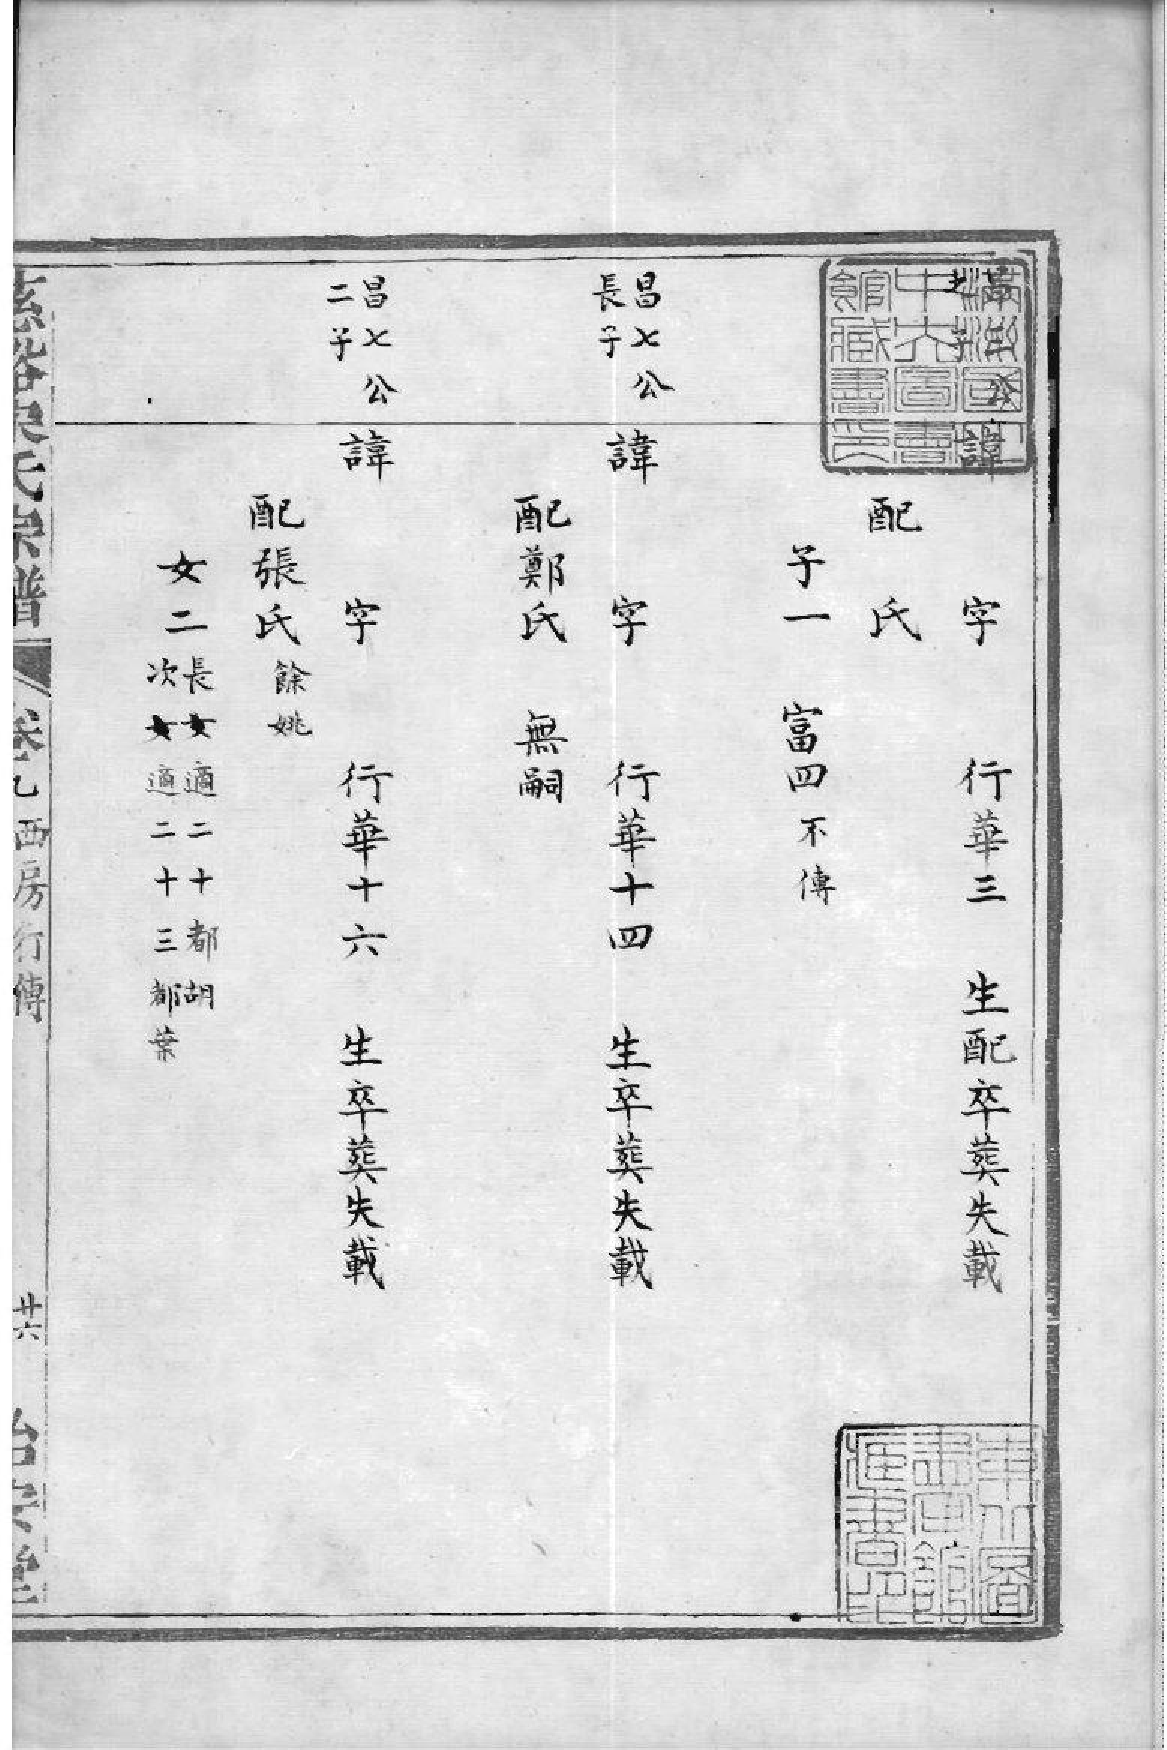 諱　字　行華三　生配卒葬失載
配　氏
子一　富四不傳
昌七公
長子
諱　字　行華十四　生卒葬失載
配鄭氏　無嗣
昌七公
二子
諱　字　行華十六　生卒葬失載
配張氏餘姚
女二
長女適二十都胡
次女適二十三都葉
氏宗譜
卷九西房行傳
廿六